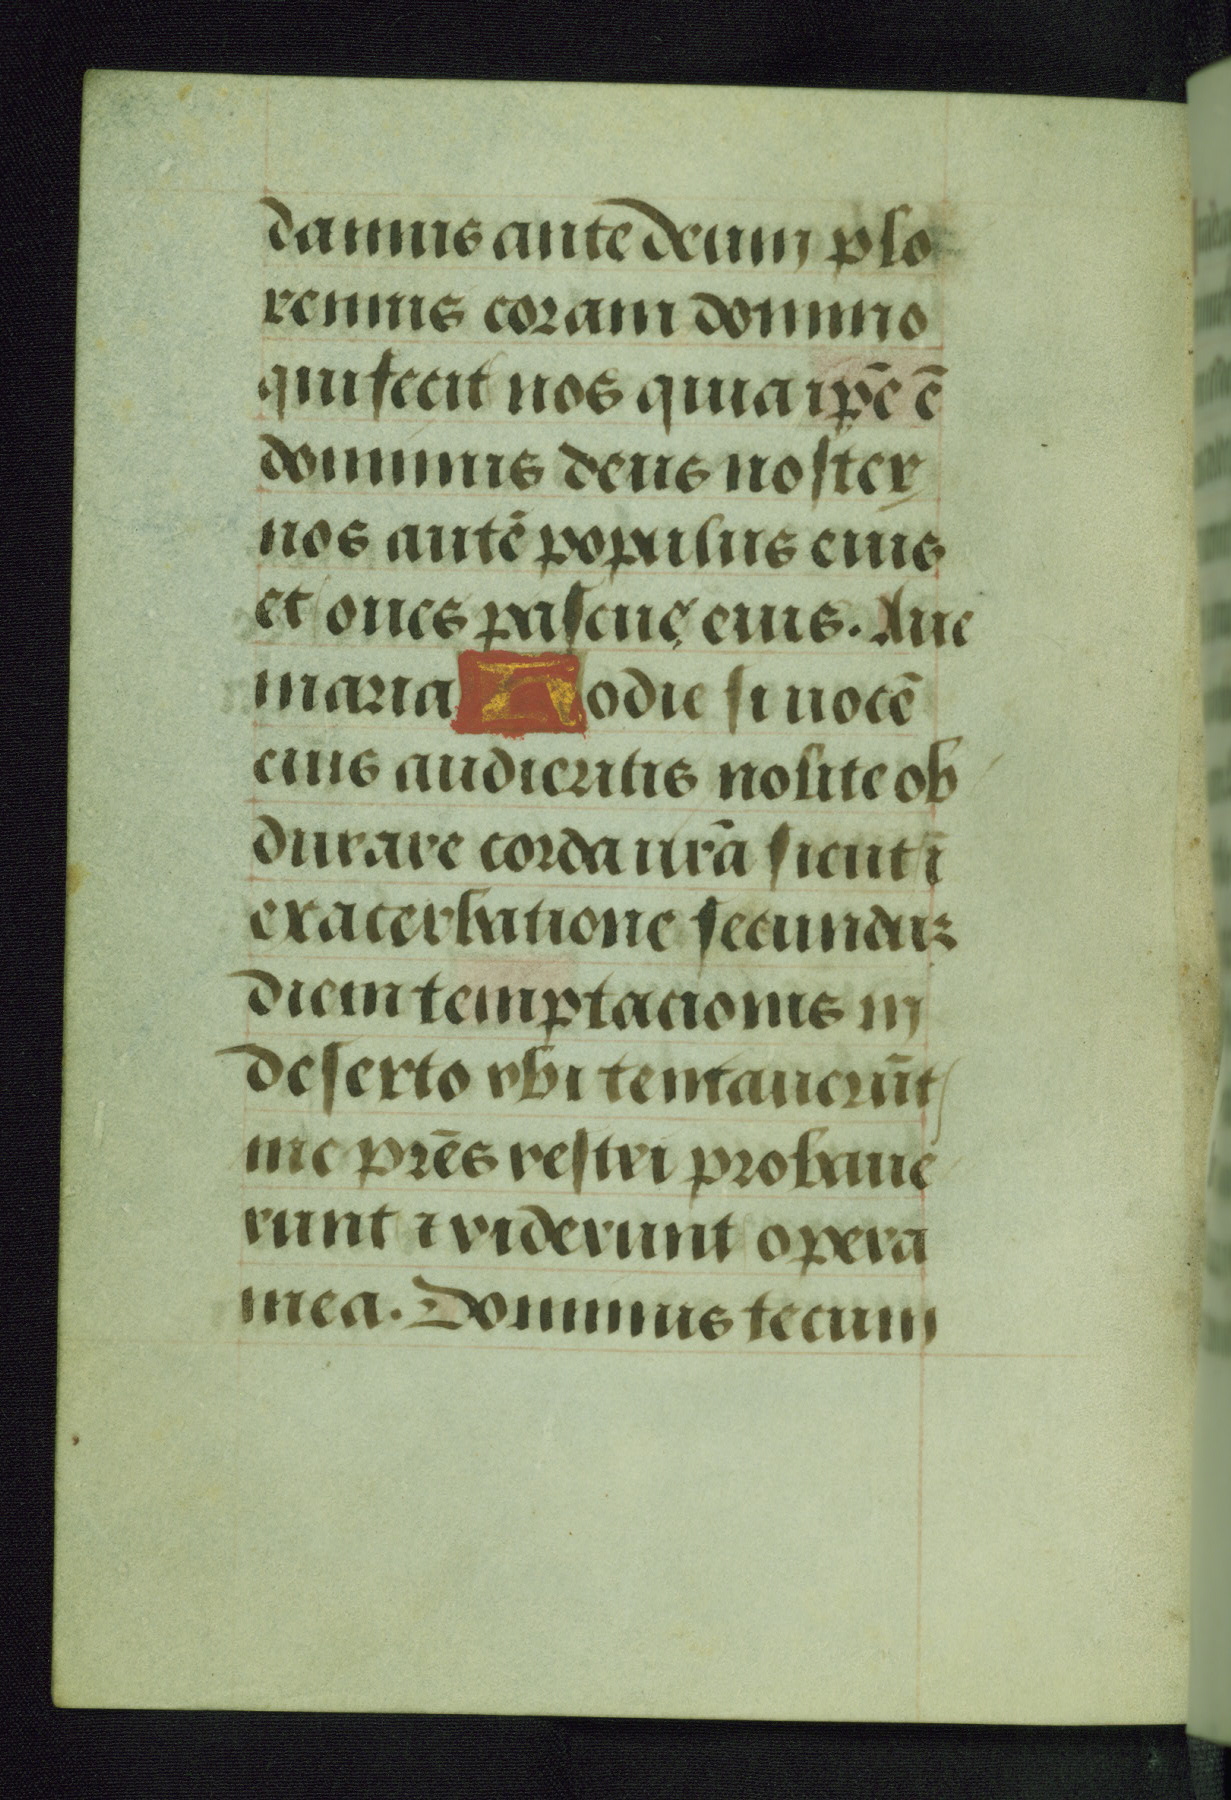 damus ante deum plo
remus coram domino
qui fecit nos quia ip̄e ē
dominus deus noster
nos autē populus eius
et oues pascuę eius. Aue
maria Hodie si uocē
eius audieritis nolite ob
durare corda ur̄a sicut ī
exacerbatione secunduz
diem temptacionis in
deserto vbi temtauerūt
me pr̄es vestri probaue
runt ⁊ viderunt opera
mea. Dominus tecum